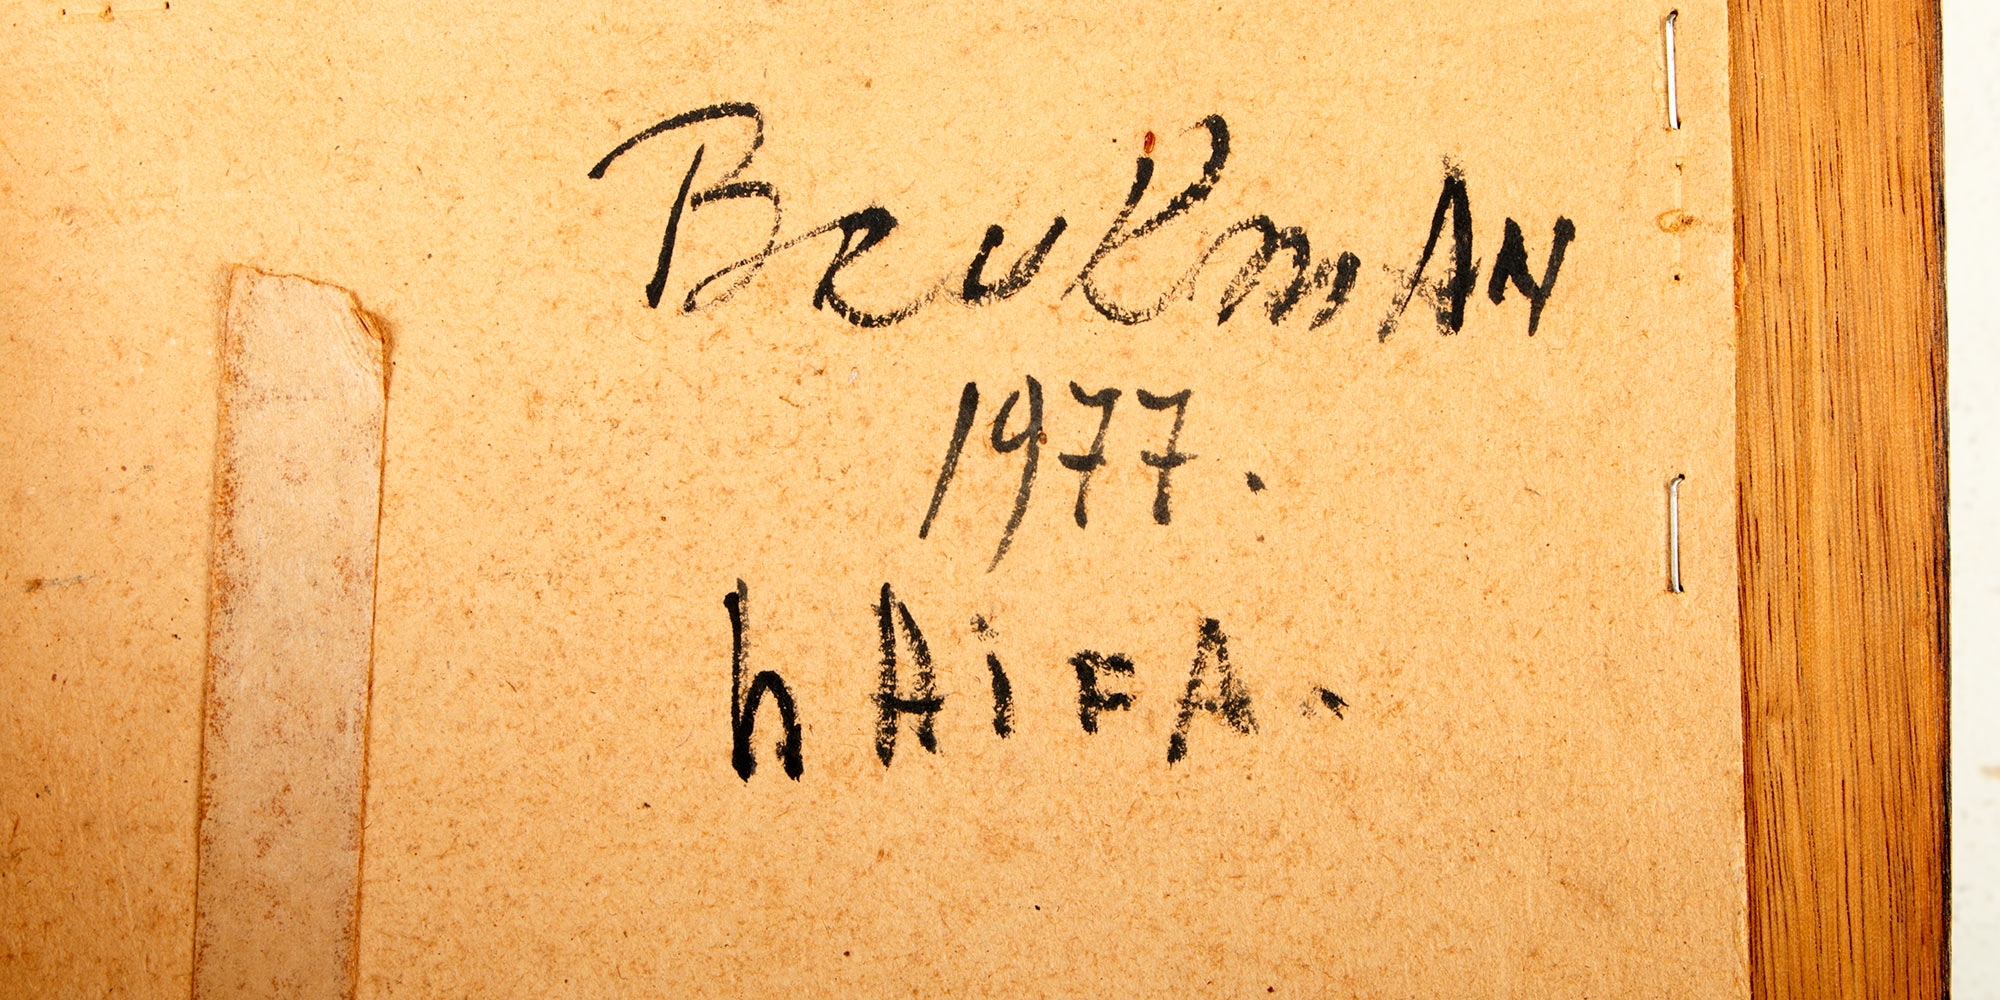 BruKmAN
1977.
hAiFA.